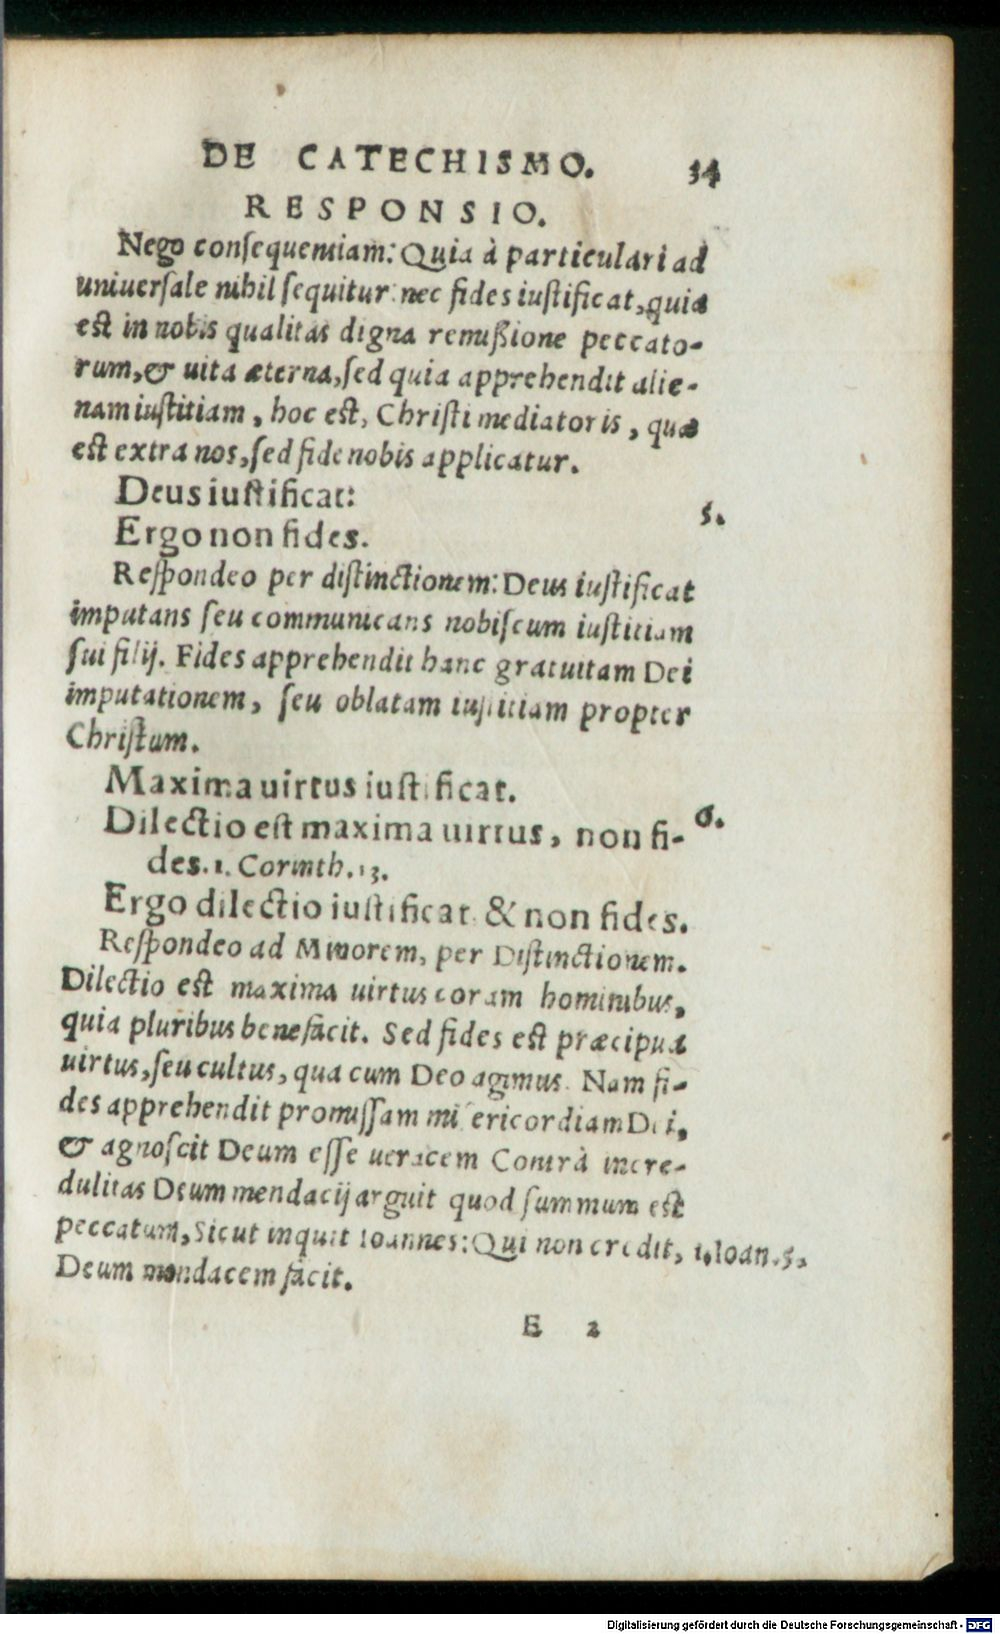 DE CATECHISMO. 34
RESPONSIO.
Nego consequentiam: Quia à particulari ad
uniuersale nihil sequitur: nec fides iustificat, quia
est in nobis qualitas digna remißione peccato-
rum, & uita æterna, sed quia apprehendit alie-
nam iustitiam, hoc est, Christi mediatoris, quæ
est extra nos, sed fide nobis applicatur.
Deus iustificat: 5.
Ergo non fides.
Respondeo per distinctionem: Deus iustificat
imputans seu communicans nobiscum iustitiam
sui filij. Fides apprehendit hanc gratuitam Dei
imputationem, seu oblatam iustitiam propter
Christum.
Maxima uirtus iustificat. 6.
Dilectio est maxima uirtus, non fi-
des. 1. Corinth. 13.
Ergo dilectio iustificat & non fides.
Respondeo ad Minorem, per Distinctionem.
Dilectio est maxima uirtus coram hominibus,
quia pluribus benefacit. Sed fides est præcipua
uirtus, seu cultus, qua cum Deo agimus. Nam fi-
des apprehendit promissam misericordiam Dei,
& agnoscit Deum esse ueracem Contrà incre-
dulitas Deum mendacij arguit quod summum est
peccatum, Sicut inquit Ioannes: Qui non credit, 1. Ioan. 5.
Deum mendacem facit.
E 2
Digitalisierung gefördert durch die Deutsche Forschungsgemeinschaft - DFG